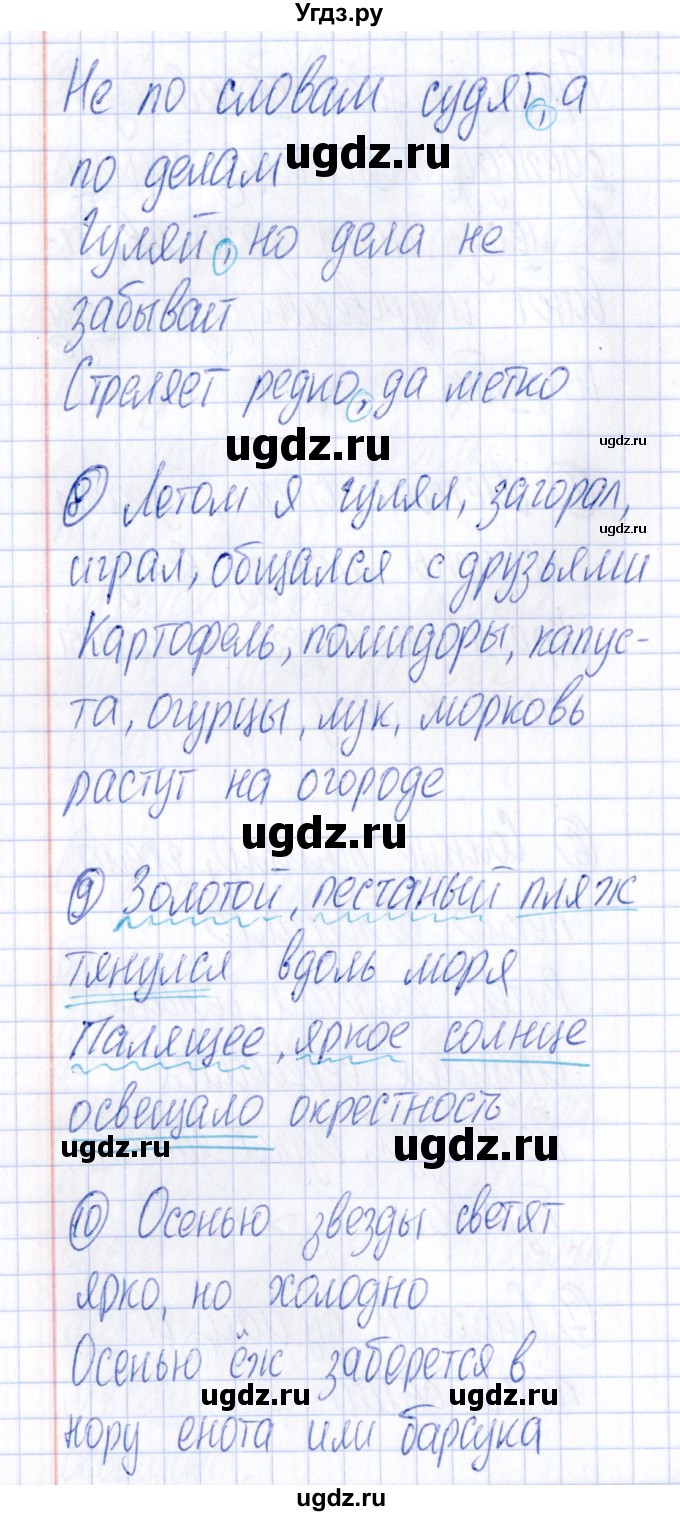 Угдз.ру
Не по словам судят, а
ugdz.ru
по делам
Гуляй, но дела не
забывает
Стреляет редко, да метко
ugdz.ru ugdz.ru
8 Летом я гулял, загорал,
ugdz.ru
играл, общался с друзьями
Картофель, помидоры, капус-
та, огурцы, лук, морковь
растут на огороде
ugdz.ru
9 Золотой, песчаный пляж
тянулся вдоль моря
Палящее, яркое солнце
освещало окрестность
ugdz.ru ugdz.ru
10 Осенью звезды светят
ярко, но холодно
Осенью ёж заберется в
ugdz.ru ugdz.ru
нору енота или барсука
ugdz.ru